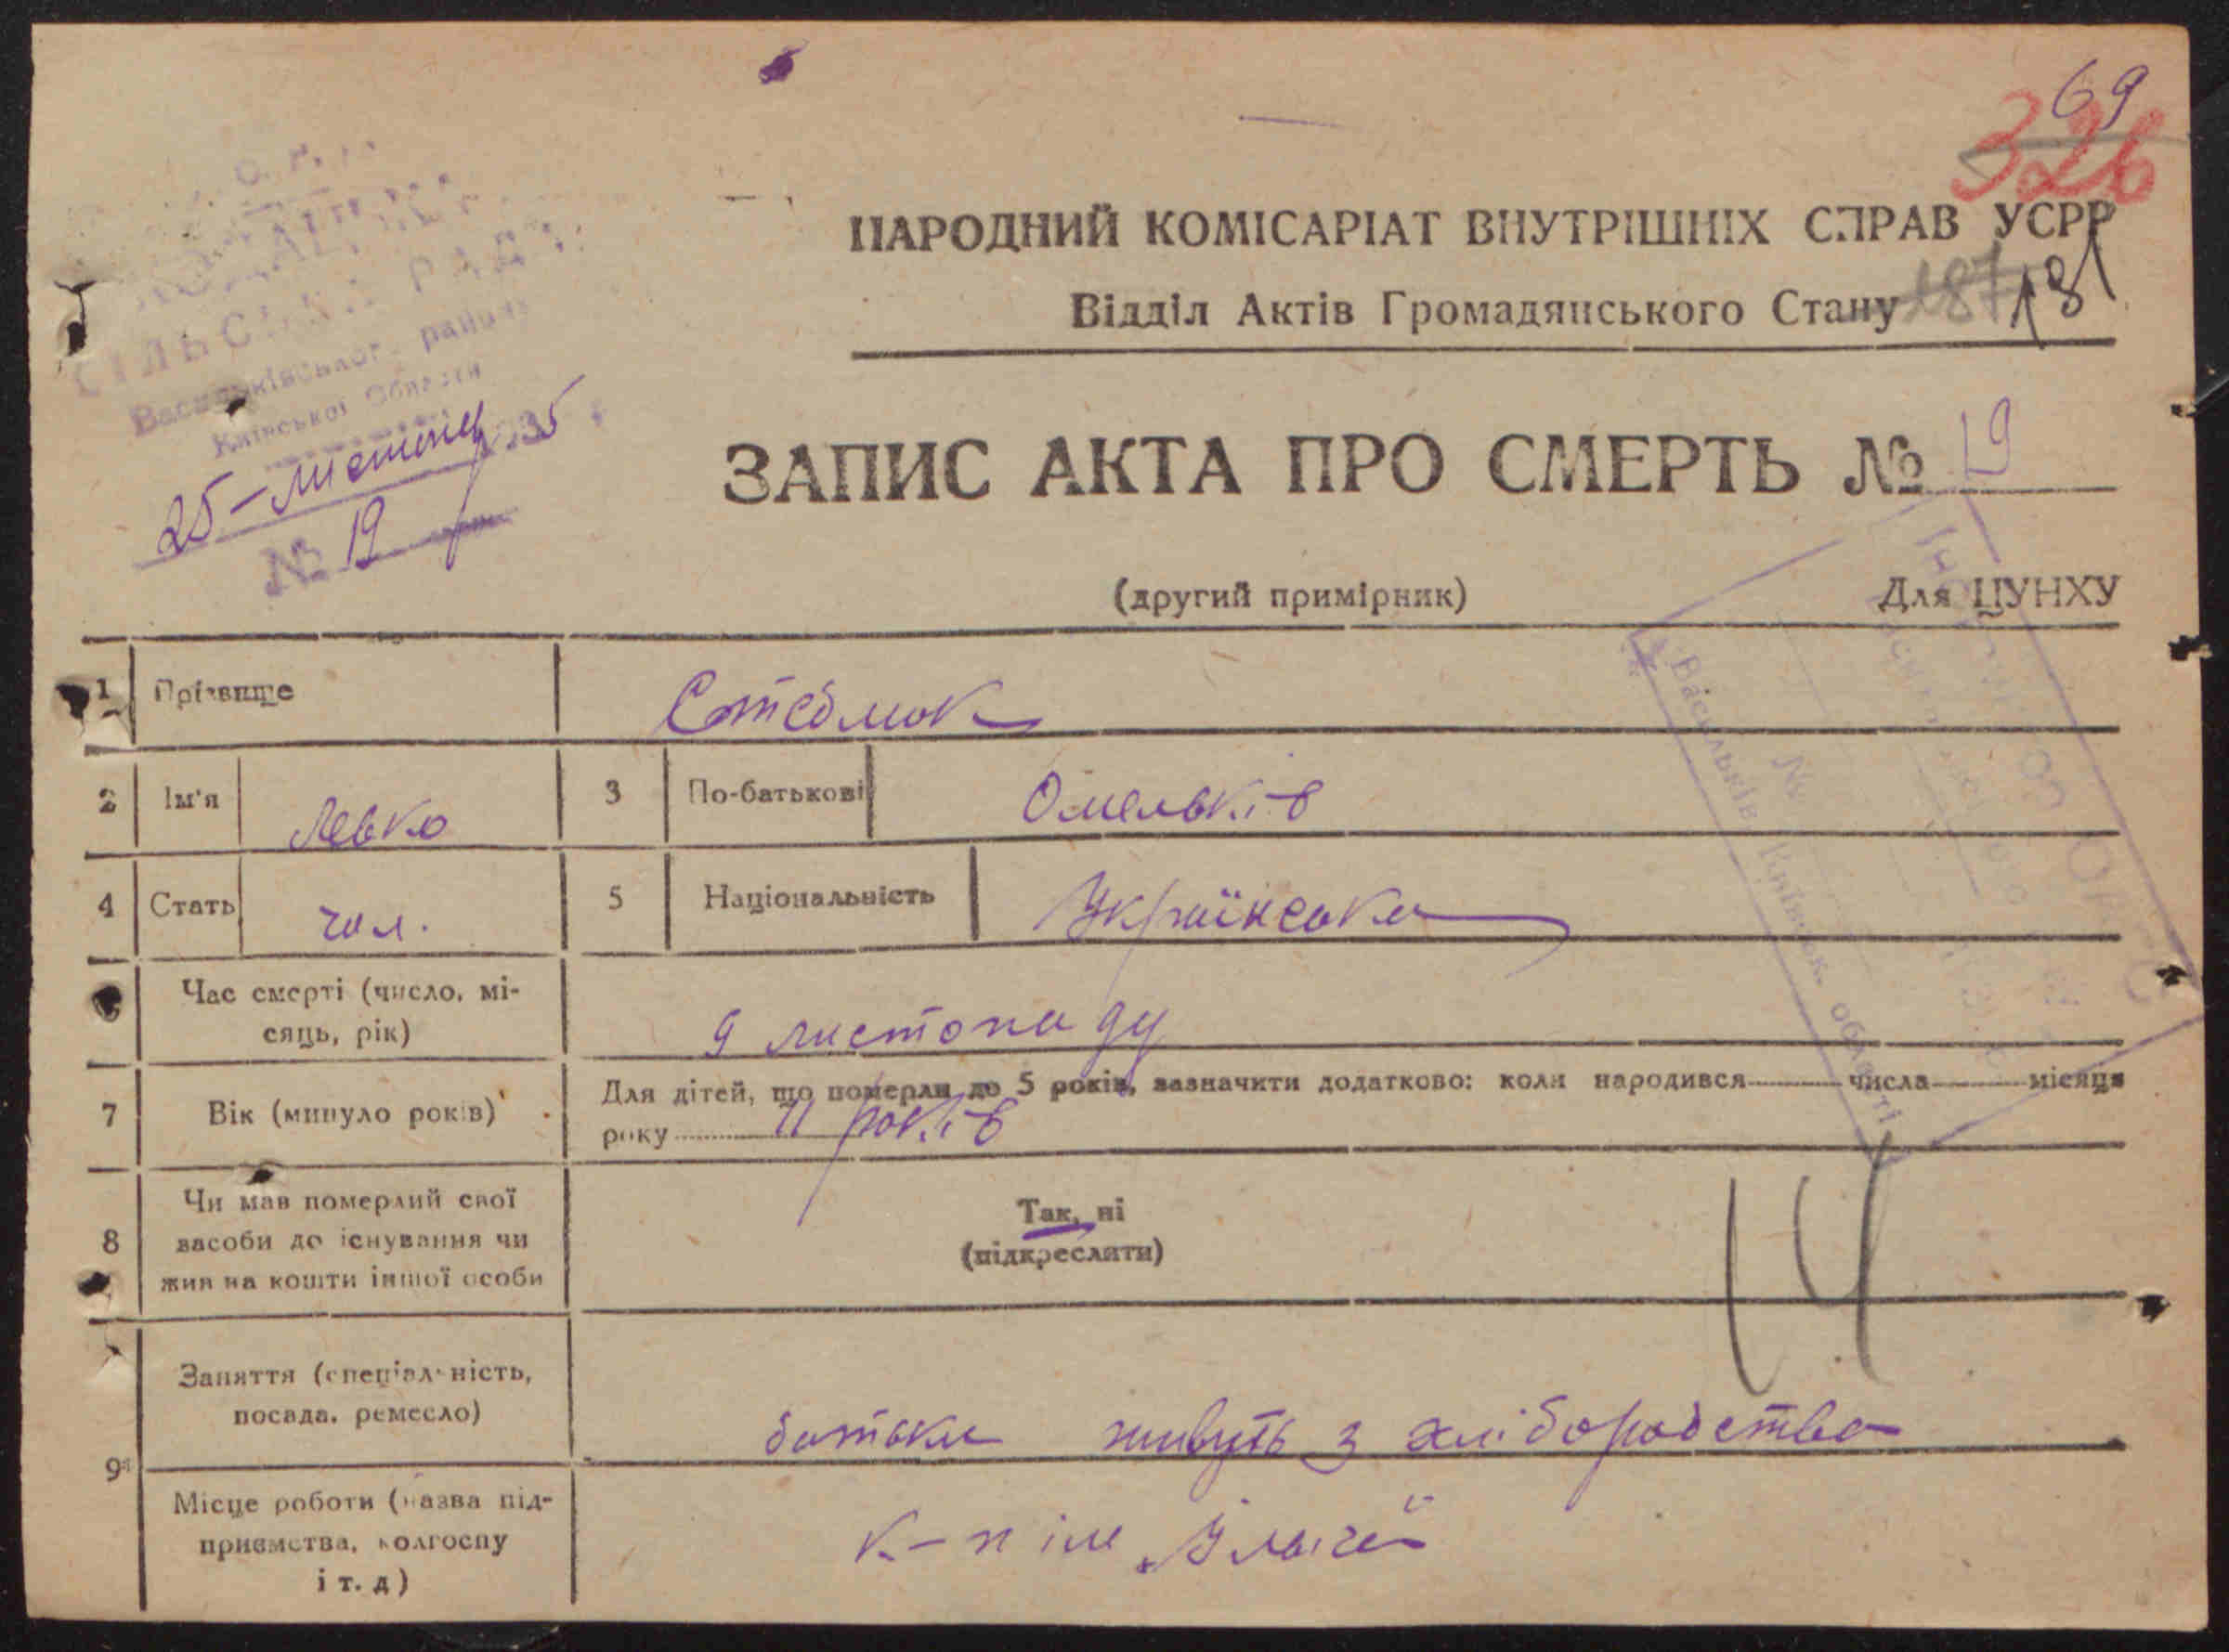 69
326
НАРОДНИЙ КОМІСАРІАТ ВНУТРІШНІХ СПРАВ УСРР
Відділ Актів Громадянського Стану 187 181
СІЛЬСЬКА РАДА
Васильківського району
Київської Области
25-листопад 1935
№ 19
ЗАПИС АКТА ПРО СМЕРТЬ № 19
(другий примірник) Для ЦУНХУ
1 Прізвище Стеблюк
2 Ім'я Левко 3 По-батькові Омельків
4 Стать чол. 5 Національність Українська
Час смерті (число, мі-
сяць, рік) 9 листопаду
7 Вік (минуло років) Для дітей, що померли до 5 років, зазначити додатково: коли народився числа місяця
року 11 років
8 Чи мав померлий свої
засоби до існування чи
жив на кошти іншої особи
Так, ні
(підкреслити)
14
9 Заняття (спеціальність,
посада, ремесло) батьки живуть з хліборобства
Місце роботи (назва під-
приємства, колгоспу
і т. д)
к-п ім
Васильків Київськ. області